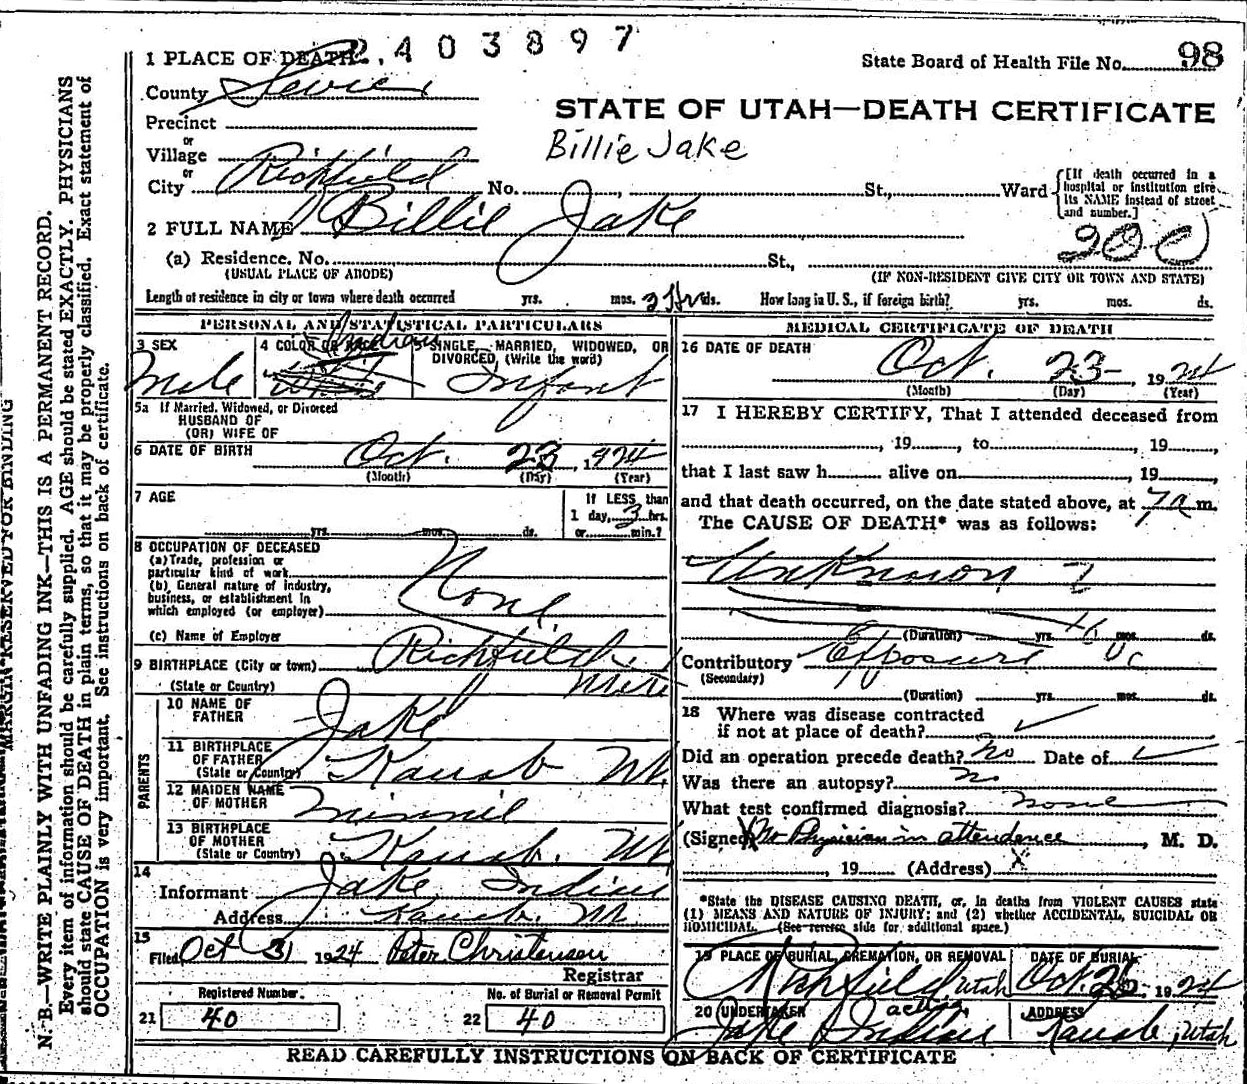 2403897
1 PLACE OF DEATH
State Board of Health File No. 98
County Sevier
STATE OF UTAH—DEATH CERTIFICATE
Precinct
or
Billie Jake
Village
or
City Richfield No. , St., Ward
[If death occurred in a hospital or institution give its NAME instead of street and number.]
2 FULL NAME Billie Jake
(a) Residence. No. St.,
(USUAL PLACE OF ABODE) (IF NON-RESIDENT GIVE CITY OR TOWN AND STATE)
Length of residence in city or town where death occurred yrs. mos. 3 Hrs ds. How long in U. S., if foreign birth? yrs. mos. ds.
PERSONAL AND STATISTICAL PARTICULARS
3 SEX Male
4 COLOR OR RACE Indian
5 SINGLE, MARRIED, WIDOWED, OR
DIVORCED, (Write the word)
Infant
5a If Married, Widowed, or Divorced
HUSBAND OF
(OR) WIFE OF
6 DATE OF BIRTH Oct. 23, 1924
(Month) (Day) (Year)
7 AGE
yrs. mos. ds.
If LESS than
1 day, 3 hrs.
or min.?
8 OCCUPATION OF DECEASED
(a) Trade, profession or
particular kind of work
(b) General nature of industry,
business, or establishment in
which employed (or employer)
None
(c) Name of Employer
9 BIRTHPLACE (City or town) Richfield
(State or Country)
PARENTS
10 NAME OF
FATHER Jake
11 BIRTHPLACE
OF FATHER
(State or Country) Kanab Ut
12 MAIDEN NAME
OF MOTHER Minnie
13 BIRTHPLACE
OF MOTHER
(State or Country) Kanab, Ut
14
Informant Jake Indian
Address Kanab, Ut
15
Filed Oct 31 1924 Peter Christensen
Registrar
Registered Number.
No. of Burial or Removal Permit
21 40
22 40
MEDICAL CERTIFICATE OF DEATH
16 DATE OF DEATH
Oct. 23, 1924
(Month) (Day) (Year)
17 I HEREBY CERTIFY, That I attended deceased from
, 19 , to , 19
that I last saw h alive on , 19
and that death occurred, on the date stated above, at 7 a m.
The CAUSE OF DEATH* was as follows:
Unknown
(Duration) yrs. mos. ds.
Contributory Exposure
(Secondary)
(Duration) yrs. mos. ds.
18 Where was disease contracted
if not at place of death?
Did an operation precede death? No Date of
Was there an autopsy? No
What test confirmed diagnosis? none
(Signed) No Physician in attendence, M. D.
, 19 (Address) X
*State the DISEASE CAUSING DEATH, or, in deaths from VIOLENT CAUSES state
(1) MEANS AND NATURE OF INJURY; and (2) whether ACCIDENTAL, SUICIDAL OR
HOMICIDAL. (See reverse side for additional space.)
19 PLACE OF BURIAL, CREMATION, OR REMOVAL
Richfield Utah
DATE OF BURIAL
Oct. 1924
20 UNDERTAKER acting
Jake Indian
ADDRESS
Kanab, Utah
READ CAREFULLY INSTRUCTIONS ON BACK OF CERTIFICATE
MARGIN RESERVED FOR BINDING
N. B.—WRITE PLAINLY WITH UNFADING INK—THIS IS A PERMANENT RECORD.
Every item of information should be carefully supplied. AGE should be stated EXACTLY. PHYSICIANS
should state CAUSE OF DEATH in plain terms, so that it may be properly classified. Exact statement of
OCCUPATION is very important. See instructions on back of certificate.